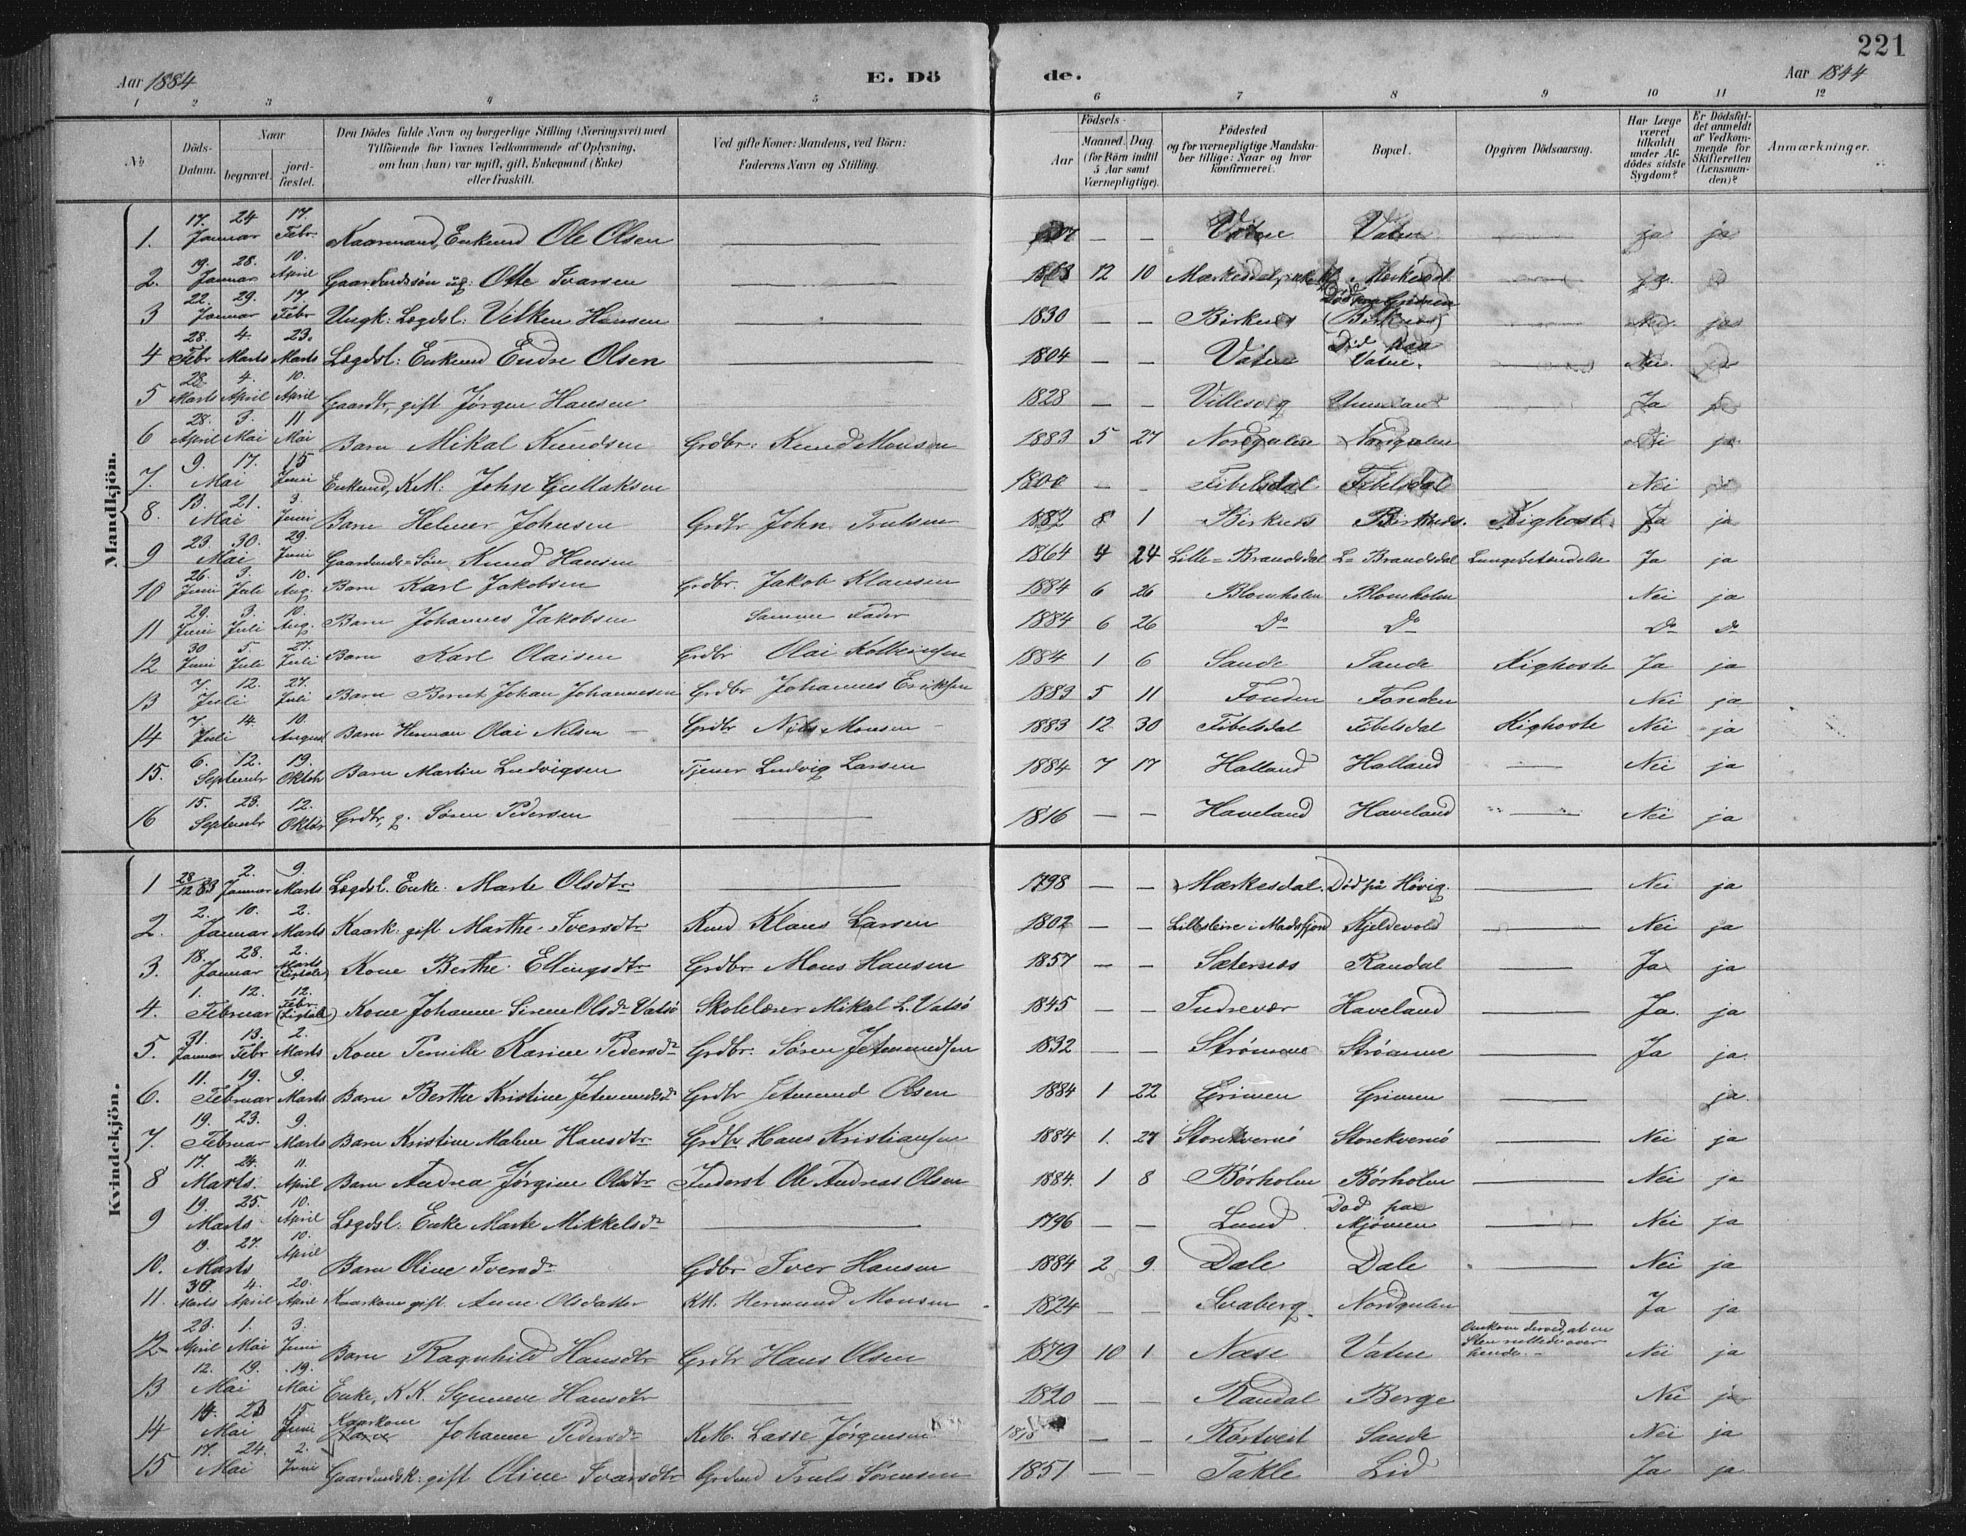 221
Aar 1884 E. Dö de. Aar 1844
1 2 3 4 5 6 7 8 9 10 11 12
No
Döds-Datum.
Naar
begravet.
jord-fæstet.
Den Dödes fulde Navn og borgerlige Stilling (Næringsvei) med
Tilföiende for Voxnes Vedkommende af Oplysning,
om han (hun) var ugift, gift, Enkemand (Enke)
eller fraskilt.
Ved gifte Koner: Mandens, ved Börn:
Faderens Navn og Stilling.
Födsels-
Aar
Maaned. Dag
(for Börn indtil
5 Aar samt
Værnepligtige).
Födested
og for værnepligtige Mandska-
ber tillige: Naar og hvor
konfirmeret.
Bopæl.
Opgiven Dödsaarsag.
Har Læge
været
tilkaldt
under Af-
dödes sidste
Sygdom?
Er Dödsfal-
det anmeldt
af Vedkom-
mende for
Skifteretten
(Lensman-
den)?
Anmærkninger.
Mandkjön.
1. 17. Januar 24 17. Febr. Kaarmand, Enkemd Ole Olsen — — — Vatne Vatne — ja ja
2. 19. Januar 28. 10. April Ole Ivarsen — 1863 12 10 —
3 22. Januar 29. 17. Febr Ungk: Lægdsl: Hansen — 1830 — — Birknes (Birknes) — Nei ja
4 28. Febr 4. Marts 23. Marts Lægdsl: Enkemd Endre Olsen — 1804 — — Vatne Död paa Vatne. — Nei.
5 28. Marts 4. April 10. April Gaardbr, gift Jørgen Hansen 1828 — — — Ja
6 28. April 3. Mai 11 Mai Barn Mikal Knudsen Grdbr: Knud Monsen 1883 5 27 Nordgulen Nordgulen ja
7 9. Mai 17. 15 Juni Enkemd, K.M: John 1800 — — Fibelsdal Fibelsdal — Nei
8. 13. Mai 21. 3. Juni Barn Helmer Johnsen Grdbr John Trulsen 1882 8 1 Birknes Birknes. Kighoste Ja ja
9 23. Mai 30. 29. Juni Gaardmds-Søn Knud Hansen 1864 4 24 Lille-Brandsdal L-Brandsdal Lungebetændelse Ja ja
10 26. Juni 3. Juli 10. Aug. Barn Karl Jakobsen Grdbr. Jakob Klausen 1884 6 26 Blomholm Blomholm Nei ja
11 29. Juni 3. Juli 10. Aug. Barn Johannes Jakobsen Samme Fader 1884 6 26 Do Do Do Do
12 30 Juni 5. Juli 27. Juli Barn Karl Olaisen Grdbr Olai 1884 1 6 Sande Sande Kighoste Ja ja
13 7. Juli 12. 27. Juli Barn Bernt Johan Johannesen Grdbr Johannes Eriksen 1883 5 11 Fonden Fonden Nei ja
14 7. Juli 14. 10. August Barn Herman Olai Nilsen — Grdbr Nils Monsen — 1883 12 30 Fibelsdal Fibelsdal Kighoste Nei ja
15. 6. September 12. 19. Oktobr Barn Martin Ludvigsen Tjener Ludvig Larsen 1884 7 17 Halland Halland — Nei ja
16 15. September 23. 12. Oktbr Grdbr, g. Søren Pedersen — 1816 — — Haveland Haveland — Nei ja
Kvindekjön.
1 28/12 83 2. Januar 9. Marts Lægdsl. Enke. Marte Olsdtr — 1798 — — Mærkesdal. Död på Høvig. — Nei ja
2. 2. Januar 10. 2. Marts Kaark: gift Marthe Iversdtr Kmd Klaus Larsen 1802 — — Kjeldevold — Nei ja
3. 18. Januar 28. 2. Marts Kone Berthe Ellingsdtr Grdbr Mons Hansen 1857 — — Sæternes Randal — Ja ja
4. 1. Februar 12. 12. Febr. Kone Johanne Sirene Olsdr Vatsö Skolelærer Mikal L. Vatsö 1845 — — Indrevær Haveland — Ja. ja
5. 31. Januar 13. Febr 2. Marts Kone Pernille Karine Pedersdr Grdbr: Søren Jetmundsen 1832 — — Strømme Strömme — Ja ja.
6. 11. Februar 19. 9. Marts Barn Berthe Kristine Jetmundsdr Grdbr Jetmund Olsen 1884 1 22 Grimen Grimen — ja.
7. 19. Februar 23. 9. Marts Barn Kristine Malene Hansdtr. Grdbr Hans Kristiansen 1884 1. 27 Storekvernö Storekvernö — Nei ja
8 17. Marts. 24. 11. April Barn Andrea Jørgine Olsdtr Inderst Ole Andreas Olsen 1884. 1 8 Börholm Börholm — Nei ja
9 19. Marts 25. 10. April Lægdsl. Enke Marte Mikkelsdr — 1796 — — Lund. Död paa Mjömen — Nei ja
10. 19. Marts 27. 10. April Barn Oline Iversdr Gdbr Iver Hansen 1884 2 9. Dale Dale — Nei ja
11. 30. Marts 4. April 20. April Kaarkone gift. Anne Olsdatter KM. Hermund Monsen 1824 — — Svaberg. Nordgulen — Ja ja
12 23. April 1. Mai 3. Juni Barn Ragnhild Hansdtr Grdbr Hans Olsen 1879 10 1 Næse Vatne Omkom derved, at en Sten væltede over hende. — Nei ja
13 12. Mai 19. 19. Mai Enke, K.K. Synneve Hansdtr — 1820 — — Randal Berge Nei ja
14 14. Mai 23 15. Juni Kaarkone Johanne Pedersdr K.M. Lasse Jørgensen 1818 — — Sande Nei ja
15 17. Mai 24. 2. Juni Gaardmdsk: gift Oline Ivarsdtr Grdmd Truls Sørensen 1851 — Takle Lid Ja ja